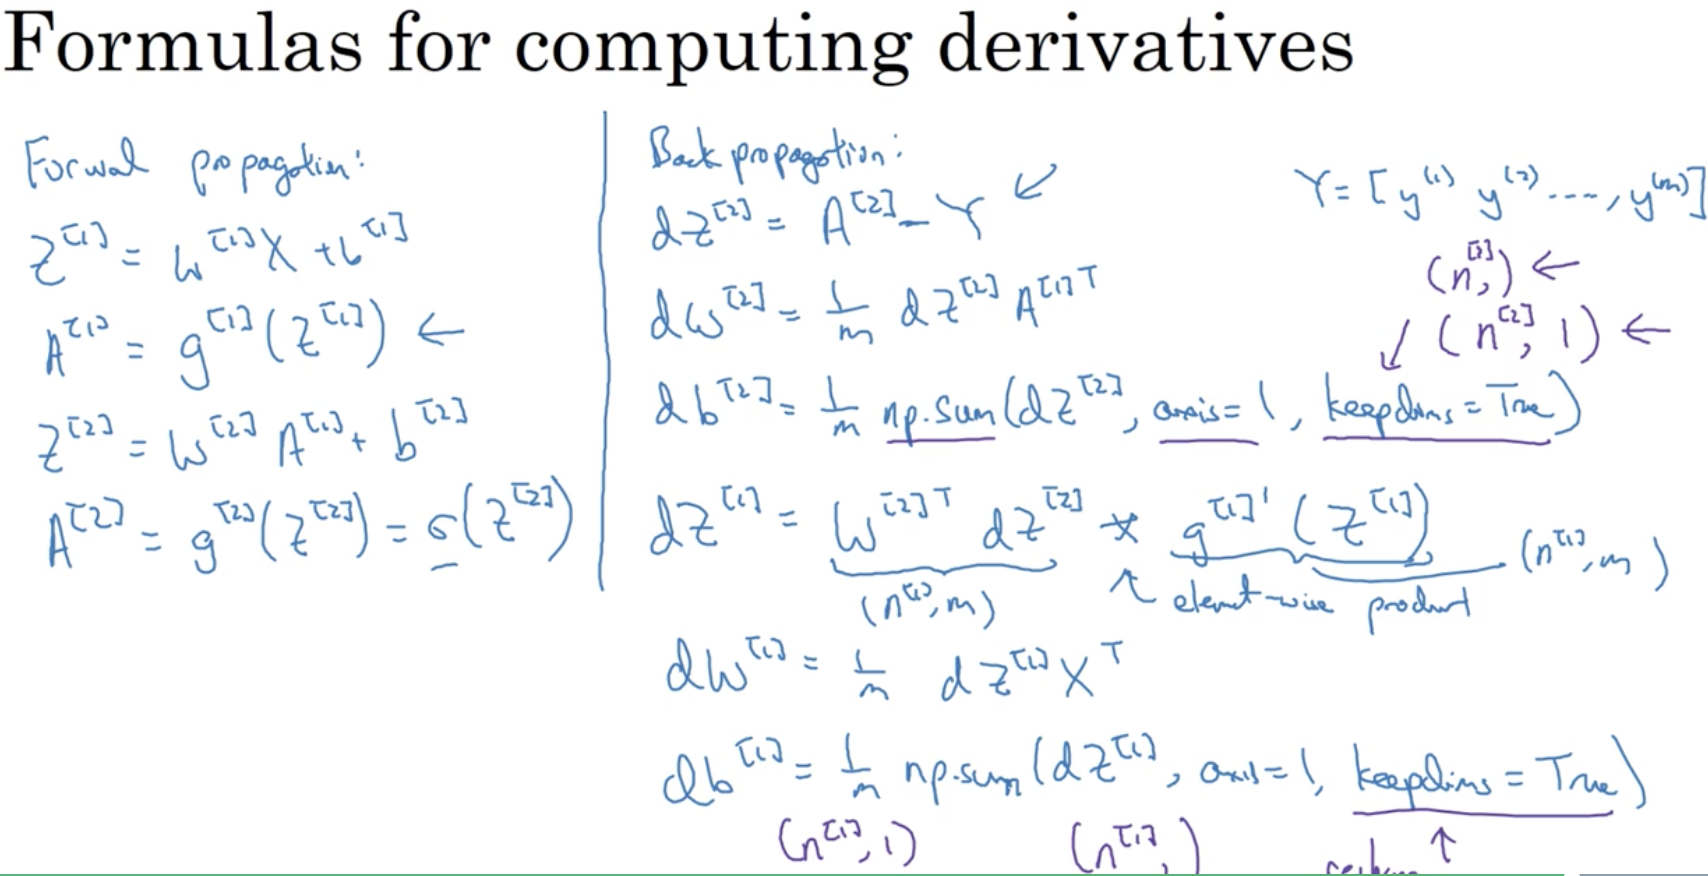 Formulas for computing derivatives
Forwal propagation:
Z^[1] = W^[1]X + b^[1]
A^[1] = g^[1](Z^[1]) ←
Z^[2] = W^[2] A^[1] + b^[2]
A^[2] = g^[2](Z^[2]) = σ(Z^[2])
Back propagation:
dZ^[2] = A^[2] - Y ↙
dW^[2] = 1/m dZ^[2] A^[1]T
db^[2] = 1/m np.sum(dZ^[2], axis=1, keepdims=True)
dZ^[1] = W^[2]T dZ^[2] * g^[1]'(Z^[1])
(n^[1], m) ↑ element-wise product (n^[1], m)
dW^[1] = 1/m dZ^[1] X^T
db^[1] = 1/m np.sum(dZ^[1], axis=1, keepdims=True)
(n^[1], 1) (n^[1],) ↑
Y = [y^(1) y^(2) ...., y^(m)]
(n^[2],) ←
↙ (n^[2], 1) ←